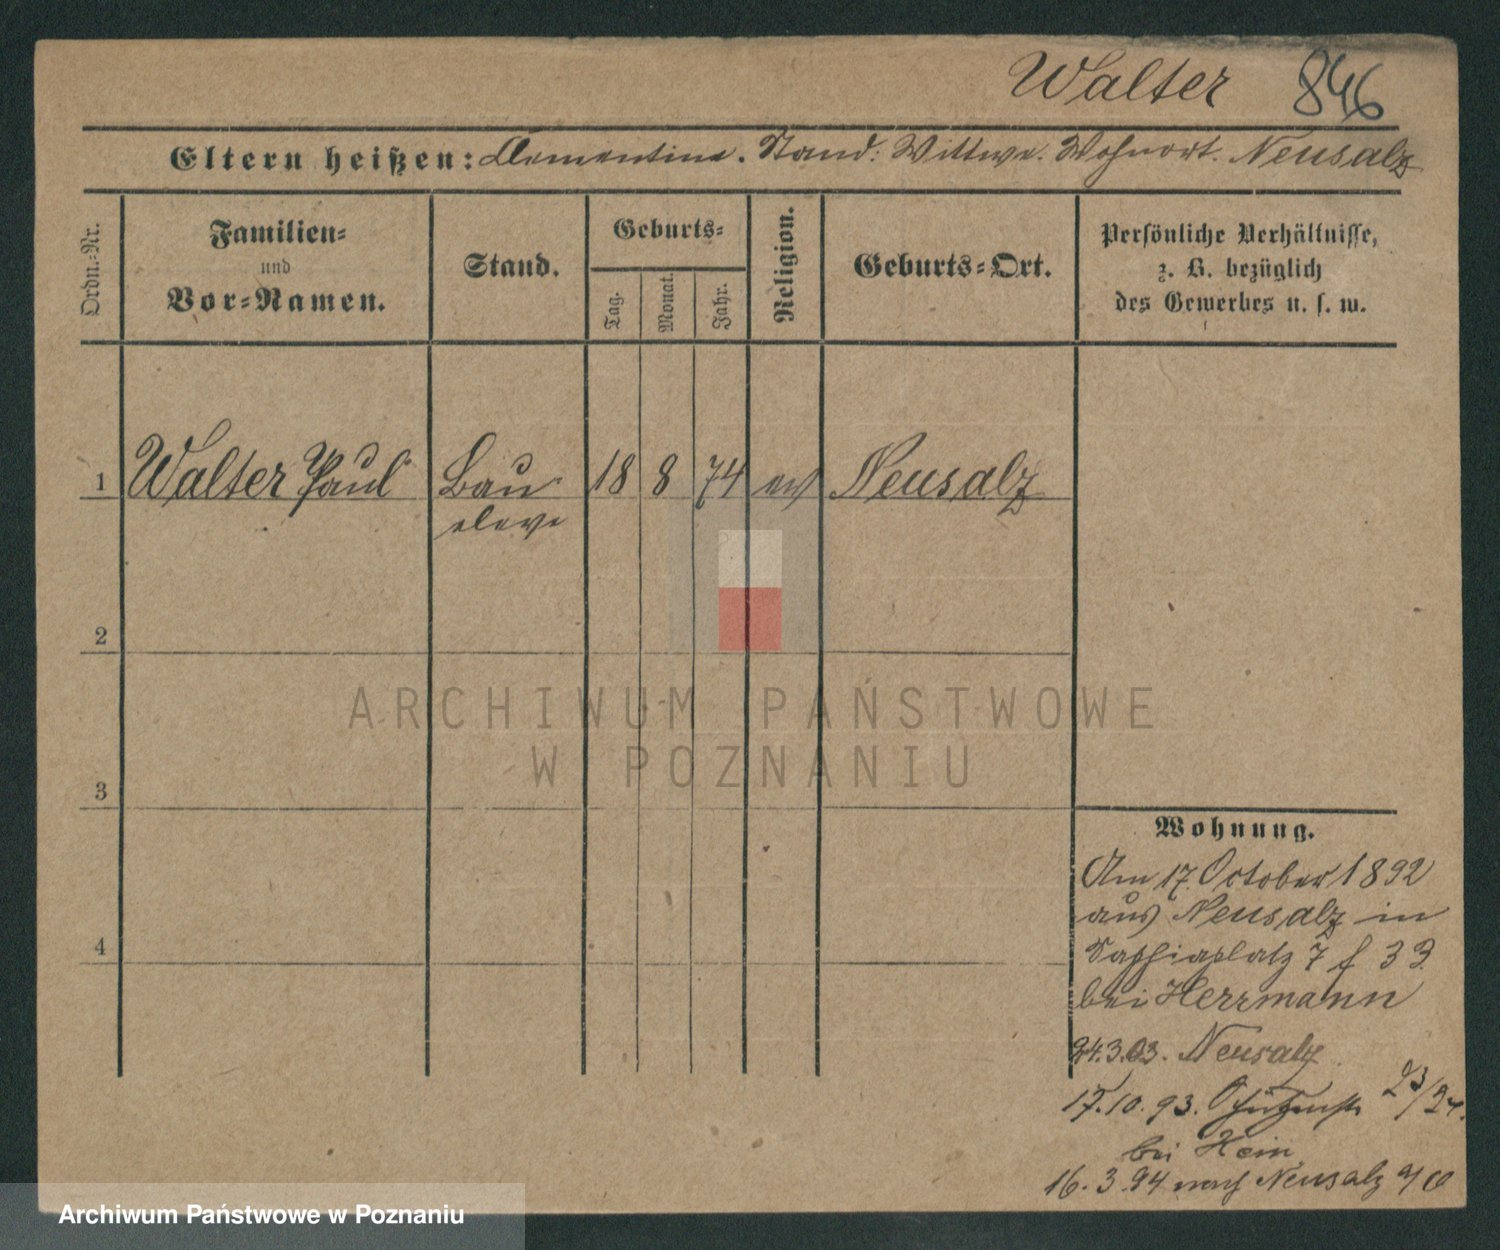 Walter 846
Eltern heißen: Clementine. Stand: Wittwe. Wohnort. Neusalz
Ordn.-Nr.
Familien-
und
Vor-Namen.
Stand.
Geburts-
Tag.
Monat.
Jahr.
Religion.
Geburts-Ort.
Persönliche Verhältnisse,
z. B. bezüglich
des Gewerbes u. s. w.
1 Walter Paul Bau 18 8 74 ev Neusalz
eleve
2
3
4
ARCHIWUM PAŃSTWOWE
W POZNANIU
Wohnung.
Am 17. October 1892
aus Neusalz in
7 f 33
bei Herrmann
24.3.93. Neusalz
17.10.93. 23/24.
bei Hein
16.3.94 nach Neusalz a/O
Archiwum Państwowe w Poznaniu